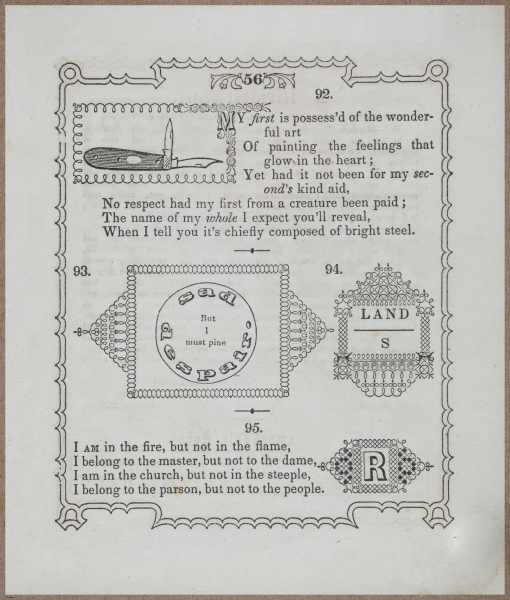 56
92.
MY first is possess'd of the wonder-
ful art
Of painting the feelings that
glow in the heart;
Yet had it not been for my sec-
ond's kind aid,
No respect had my first from a creature been paid;
The name of my whole I expect you'll reveal,
When I tell you it's chiefly composed of bright steel.
93.
sad
But
I
must pine
despair.
94.
LAND
S
95.
I AM in the fire, but not in the flame,
I belong to the master, but not to the dame,
I am in the church, but not in the steeple,
I belong to the parson, but not to the people.
R